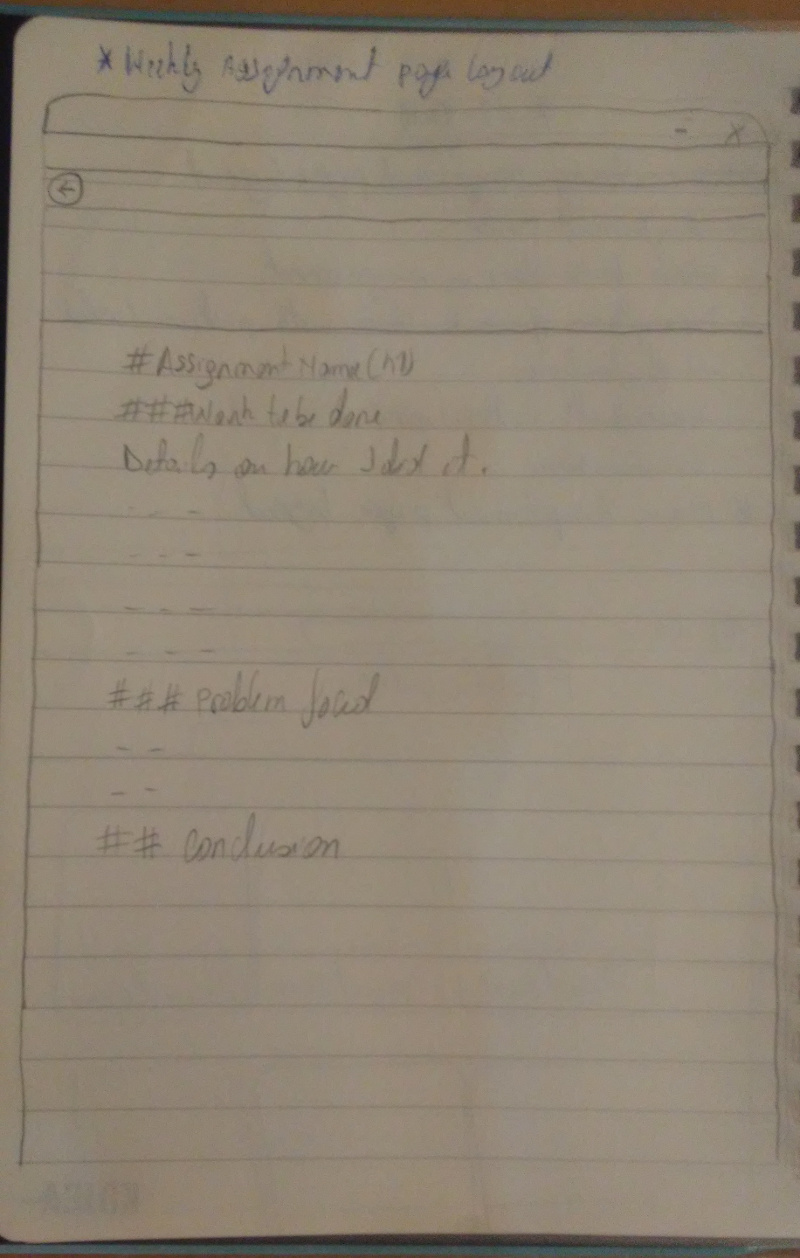 * Weekly Assignment page layout
- x
←
# Assignment Name (h1)
### Work to be done
Details on how I did it.
- - -
- - -
- - -
- - -
### Problem
- -
- -
## Conclusion